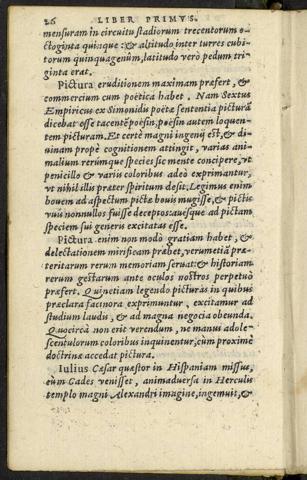 26 LIBER PRIMVS.
mensuram in circuitu stadiorum trecentorum o-
ctoginta quinque: & altitudo inter turres cubi-
torum quinquagenûm, latitudo verò pedum tri-
ginta erat.
Pictura eruditionem maximam præfert, &
commercium cum poëtica habet. Nam Sextus
Empiricus ex Simonidis poëtæ sententia picturã
dicebat esse tacentẽ poësin, poësin autem loquen-
tem picturam. Et certè magni ingenij est, & di-
uinam propè cognitionem attingit, varias ani-
malium rerúmque species sic mente concipere, vt
penicillo & variis coloribus adeò exprimantur,
vt nihil illis præter spiritum desit. Legimus enim
bouem ad aspectum pictæ bouis mugisse, & pictis
vuis nonnullos fuisse deceptos: auésque ad pictam
speciem sui generis excitatas esse.
Pictura enim non modò gratiam habet, &
delectationem mirificam præbet, verumetiã præ-
teritarum rerum memoriam seruat: & historiam
rerum gestarum ante oculos nostros perpetuò
præfert. Quinetiam legendo picturas in quibus
præclara facinora exprimuntur, excitamur ad
studium laudis, & ad magna negocia obeunda.
Quocircà non erit verendum, ne manus adole-
scentulorum coloribus inquinentur, cùm proximè
doctrinæ accedat pictura.
Iulius Cæsar quæstor in Hispaniam missus,
cùm Gades venisset, animaduersa in Herculis
templo magni Alexandri imagine, ingemuit, &